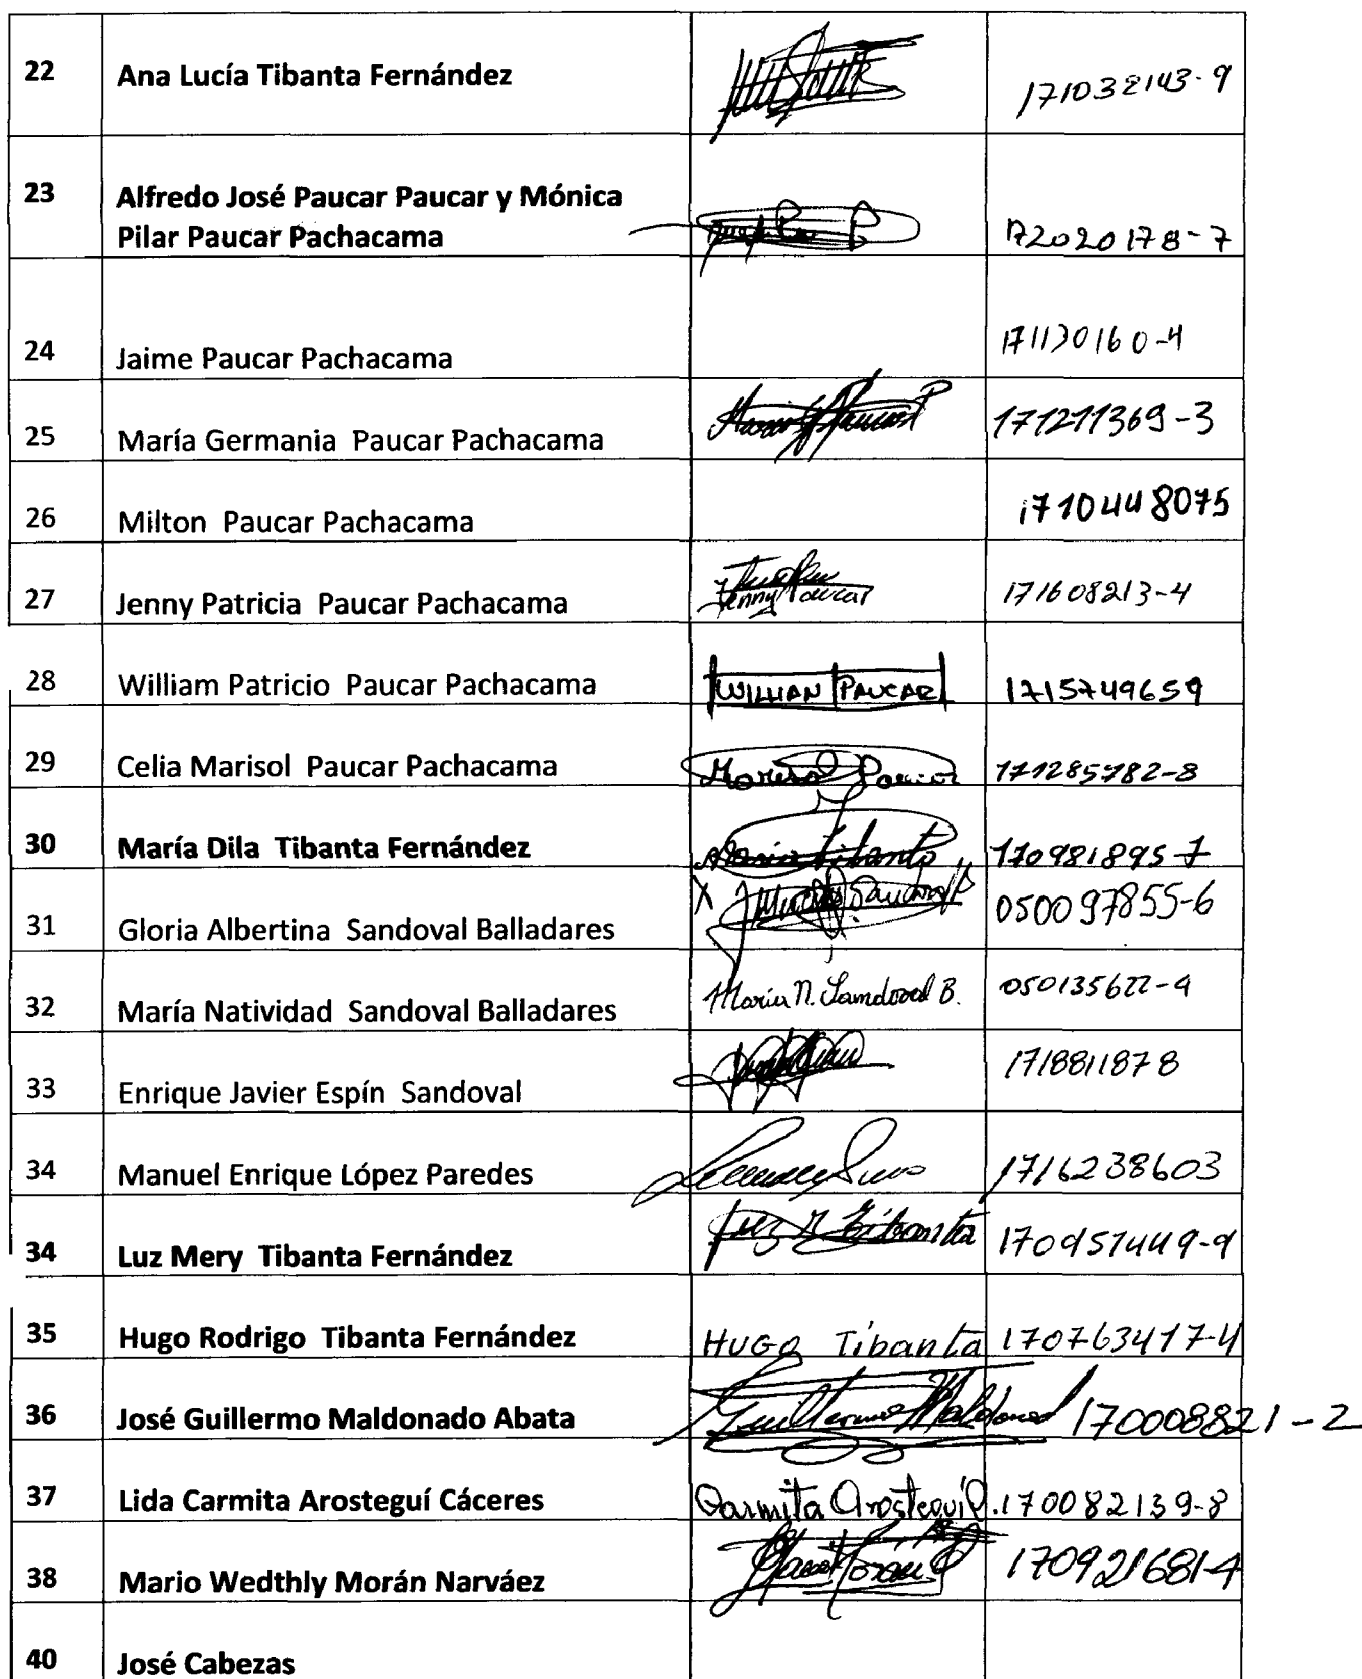 22 Ana Lucía Tibanta Fernández 171032143-9
23 Alfredo José Paucar Paucar y Mónica
Pilar Paucar Pachacama 172020178-7
24 Jaime Paucar Pachacama 171130160-4
25 María Germania Paucar Pachacama 171211369-3
26 Milton Paucar Pachacama 1710448075
27 Jenny Patricia Paucar Pachacama Jenny Paucar 171608213-4
28 William Patricio Paucar Pachacama WILLIAN PAUCAR 1715749659
29 Celia Marisol Paucar Pachacama Marisol Paucar 171285782-8
30 María Dila Tibanta Fernández Maria Tibanta 170981895-7
31 Gloria Albertina Sandoval Balladares X 050097855-6
32 María Natividad Sandoval Balladares Maria N. Sandoval B. 050135622-4
33 Enrique Javier Espín Sandoval 1718811878
34 Manuel Enrique López Paredes 1716238603
34 Luz Mery Tibanta Fernández Luz M Tibanta 170951449-9
35 Hugo Rodrigo Tibanta Fernández HUGO Tibanta 170763417-4
36 José Guillermo Maldonado Abata Guillermo Maldonado 170008821-2
37 Lida Carmita Arosteguí Cáceres Carmita Arosteguí C. 170082139-8
38 Mario Wedthly Morán Narváez 170921681-4
40 José Cabezas